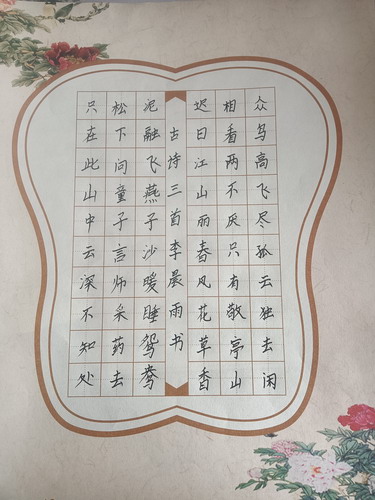 众鸟高飞尽孤云独去闲
相看两不厌只有敬亭山
迟日江山丽春风花草香
古诗三首李晨雨书
泥融飞燕子沙暖睡鸳鸯
松下问童子言师采药去
只在此山中云深不知处